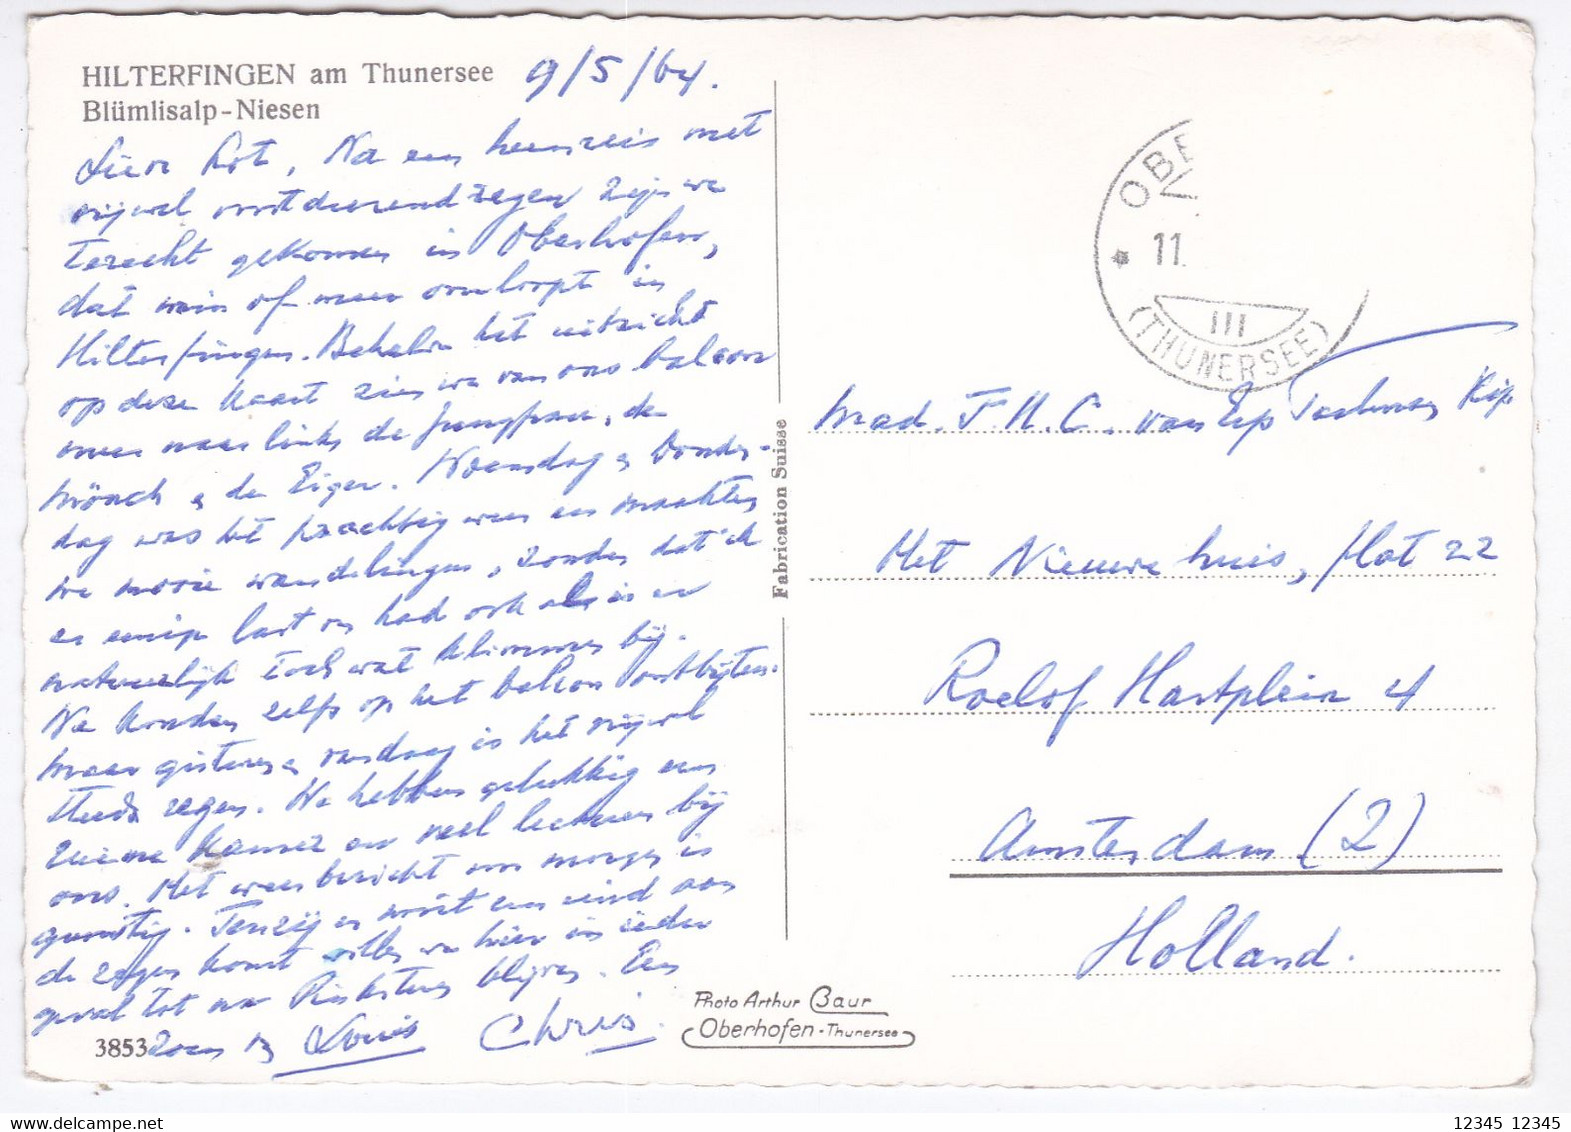 HILTERFINGEN am Thunersee
9/5/64.
Blümlisalp-Niesen
Lieve Lot, Na een heenreis met
vrijwel voortdurend regen zijn we
terecht gekomen in Oberhofen,
dat min of meer overloopt in
Hilterfingen. Behalve het uitzicht
op deze kaart zien we van ons balcon
meer naar links de Jungfrau, de
Mönch & de Eiger. Woensdag & Donder-
dag was het prachtig weer en maakten
we mooie wandelingen, zonder dat ik
er enige last van had ook als is er
natuurlijk toch wat klimmen bij.
We konden zelfs op het balcon ontbijten.
Maar gisteren & vandaag is het vrijwel
steeds regen. We hebben gelukkig een
ruime kamer en veel lectuur bij
ons. Het weerbericht voor morgen is
gunstig. Tenzij er nooit een eind aan
de regen komt willen we hier in ieder
geval tot na Pinksteren blijven. Een
zoen v Louis Chris.
3853
Fabrication Suisse
Photo Arthur Baur
Oberhofen - Thunersee
OBE
11.
III
(THUNERSEE)
Mad. J. H. C. van Erp Taalman Kip
Het Nieuwe huis, flat 22
Roelof Hartplein 4
Amsterdam (2)
Holland.
12345 12345